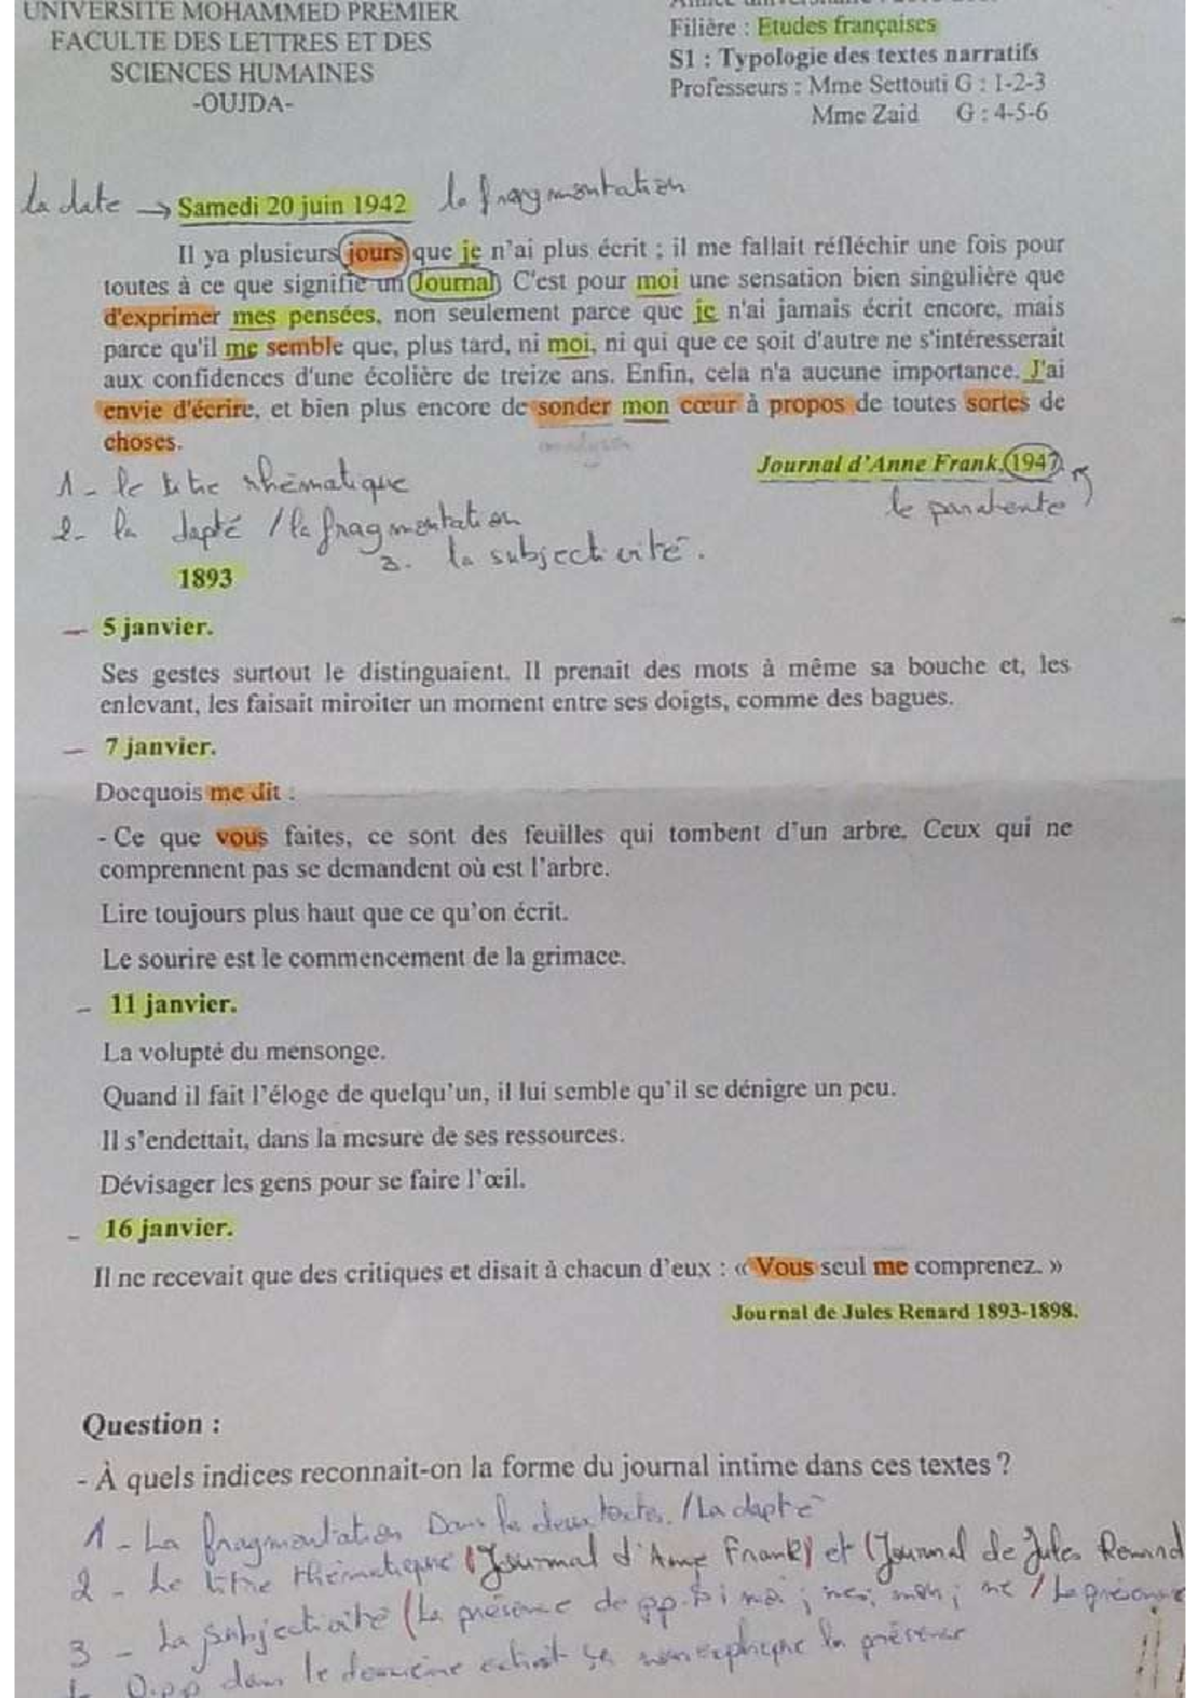 UNIVERSITE MOHAMMED PREMIER
FACULTE DES LETTRES ET DES
SCIENCES HUMAINES
-OUJDA-
Filière : Etudes françaises
S1 : Typologie des textes narratifs
Professeurs : Mme Settouti G : 1-2-3
Mme Zaid G : 4-5-6
La date → Samedi 20 juin 1942 la fragmentation
Il ya plusieurs jours que je n'ai plus écrit ; il me fallait réfléchir une fois pour
toutes à ce que signifie un Journal. C'est pour moi une sensation bien singulière que
d'exprimer mes pensées, non seulement parce que je n'ai jamais écrit encore, mais
parce qu'il me semble que, plus tard, ni moi, ni qui que ce soit d'autre ne s'intéresserait
aux confidences d'une écolière de treize ans. Enfin, cela n'a aucune importance. J'ai
envie d'écrire, et bien plus encore de sonder mon cœur à propos de toutes sortes de
choses.
Journal d'Anne Frank, 1947
1- le titre rhématique
2- la dapté / la fragmentation
3. la subjectivité.
1893
- 5 janvier.
Ses gestes surtout le distinguaient. Il prenait des mots à même sa bouche et, les
enlevant, les faisait miroiter un moment entre ses doigts, comme des bagues.
- 7 janvier.
Docquois me dit :
- Ce que vous faites, ce sont des feuilles qui tombent d'un arbre. Ceux qui ne
comprennent pas se demandent où est l'arbre.
Lire toujours plus haut que ce qu'on écrit.
Le sourire est le commencement de la grimace.
- 11 janvier.
La volupté du mensonge.
Quand il fait l'éloge de quelqu'un, il lui semble qu'il se dénigre un peu.
Il s'endettait, dans la mesure de ses ressources.
Dévisager les gens pour se faire l'œil.
- 16 janvier.
Il ne recevait que des critiques et disait à chacun d'eux : « Vous seul me comprenez. »
Journal de Jules Renard 1893-1898.
Question :
- À quels indices reconnait-on la forme du journal intime dans ces textes ?
1 - La fragmentation Dans les deux textes. / La dapté
2 - Le titre thématique (Journal d'Anne Frank) et (Journal de Jules Renard
3 - La subjectivité (La présence de pp. moi ; mes, mon ; me / La présence
dans le deuxième extrait la présence